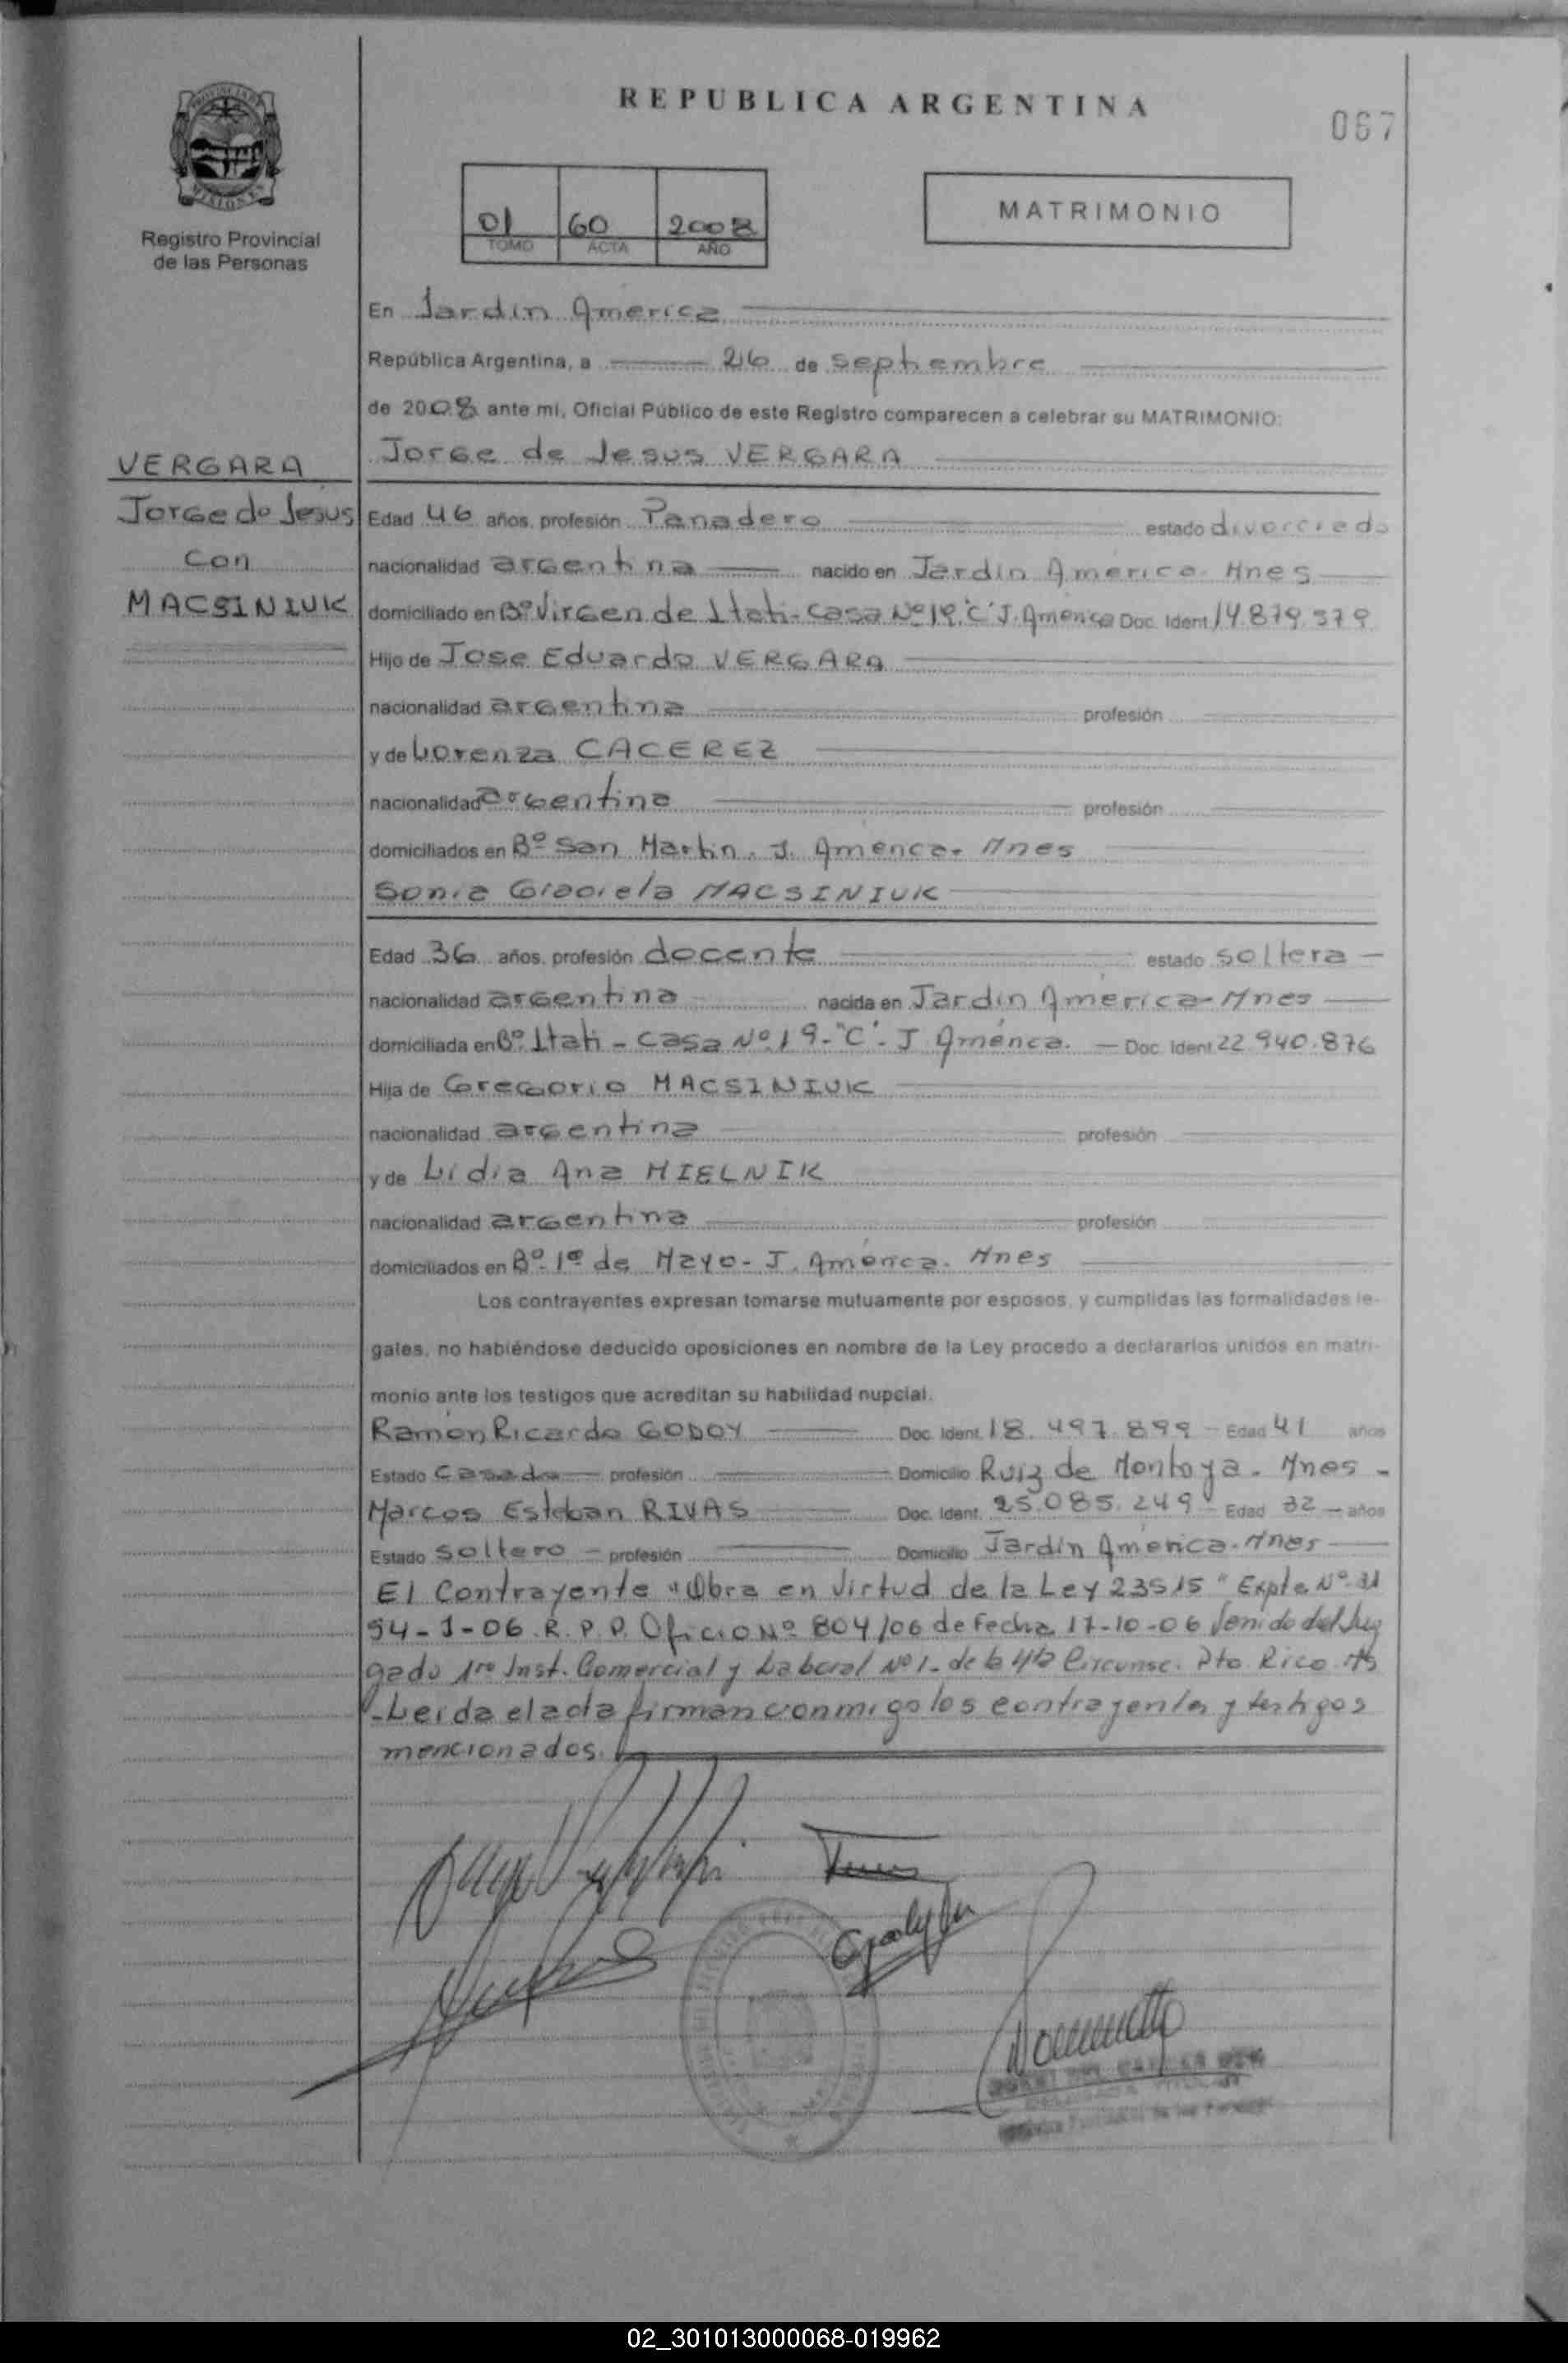 REPUBLICA ARGENTINA
067
Registro Provincial
de las Personas
01 60 2008
TOMO ACTA AÑO
MATRIMONIO
En Jardin America
República Argentina, a 26 de septiembre
de 2008 ante mi, Oficial Público de este Registro comparecen a celebrar su MATRIMONIO:
Jorge de Jesus VERGARA
VERGARA
Jorge de Jesus
con
MACSINIUK
Edad 46 años, profesión Panadero estado divorciado
nacionalidad argentina nacido en Jardin America - Mnes
domiciliado en Bº Virgen de Itati - casa Nº 19 "C" J. America Doc. Ident. 14.879.579
Hijo de Jose Eduardo VERGARA
nacionalidad argentina profesión
y de Lorenza CACEREZ
nacionalidad argentina profesión
domiciliados en Bº San Martin. J. America - Mnes
Sonia Graciela MACSINIUK
Edad 36 años, profesión docente estado soltera
nacionalidad argentina nacida en Jardin America - Mnes
domiciliada en Bº Itati - casa Nº 19 - "C" - J America. Doc. Ident. 22 940.876
Hija de Gregorio MACSINIUK
nacionalidad argentina profesión
y de Lidia Ana MIELNIK
nacionalidad argentina profesión
domiciliados en Bº 1º de Mayo - J. America. Mnes
Los contrayentes expresan tomarse mutuamente por esposos, y cumplidas las formalidades le-
gales, no habiéndose deducido oposiciones en nombre de la Ley procedo a declararlos unidos en matri-
monio ante los testigos que acreditan su habilidad nupcial.
Ramon Ricardo GODOY Doc. Ident. 18.497.899 - Edad 41 años
Estado Casado profesión Domicilio Ruiz de Montoya - Mnes -
Marcos Esteban RIVAS Doc. Ident. 25.085.249 - Edad 32 - años
Estado soltero - profesión Domicilio Jardin America - Mnes
El Contrayente "Obra en Virtud de la Ley 23515" Expte Nº 31
94-J-06. R.P.P. Oficio Nº 804/06 de Fecha 17-10-06 Venido del Juz
gado 1ro Inst. Comercial y Laboral Nº 1 - de la 4ta Circunsc. Pto. Rico
-Leida el acta firman conmigo los contrayentes y testigos
mencionados.
02_301013000068-019962